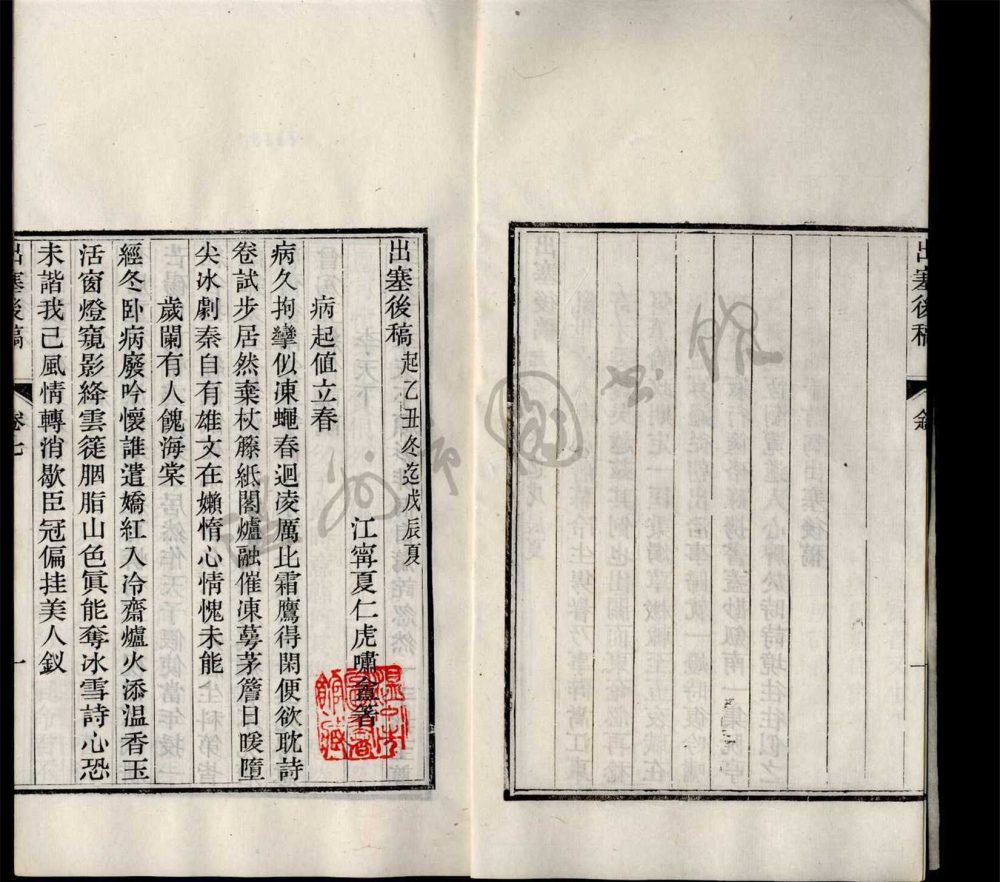 出塞後稿
一
出塞後稿起乙丑冬迄戊辰夏
江寧夏仁虎嘯盦著
病起值立春
病久拘攣似凍蠅春迴凌厲比霜鷹得閑便欲耽詩
卷試步居然棄杖籐紙閣爐融催凍蕚茅簷日暖墮
尖冰劇秦自有雄文在嬾惰心情愧未能
歲闌有人餽海棠
經冬卧病廢吟懷誰遣嬌紅入冷齋爐火添温香玉
活窗燈窺影絳雲篵胭脂山色眞能奪冰雪詩心恐
未諧我已風情轉消歇臣冠偏挂美人釵
出塞後稿
卷七
一